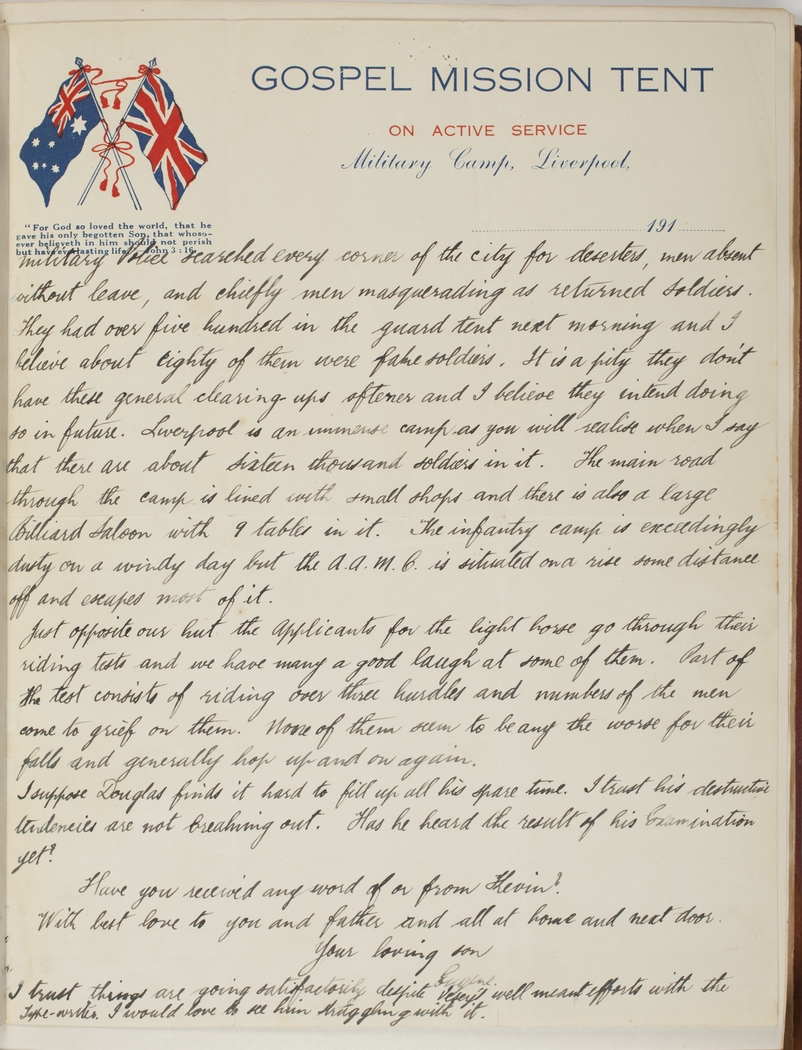 GOSPEL MISSION TENT
ON ACTIVE SERVICE
Military Camp, Liverpool,
191
"For God so loved the world, that he
gave his only begotten Son, that whoso-
ever believeth in him should not perish
but have everlasting life." John 3 : 16.
Military Police searched every corner of the city for deserters, men absent
without leave, and chiefly men masquerading as returned soldiers.
They had over five hundred in the guard tent next morning and I
believe about eighty of them were fake soldiers. It is a pity they don't
have these general clearing-ups oftener and I believe they intend doing
so in future. Liverpool is an immense camp as you will realise when I say
that there are about sixteen thousand soldiers in it. The main road
through the camp is lined with small shops and there is also a large
Billiard Saloon with 9 tables in it. The infantry camp is exceedingly
dusty on a windy day but the A.A.M.C. is situated on a rise some distance
off and escapes most of it.
Just opposite our hut the applicants for the light horse go through their
riding tests and we have many a good laugh at some of them. Part of
the test consists of riding over three hurdles and numbers of the men
come to grief on them. None of them seem to be any the worse for their
falls and generally hop up and on again.
I suppose Douglas finds it hard to fill up all his spare time. I trust his destructive
tendencies are not breaking out. Has he heard the result of his Examination
yet?
Have you received any word of or from Kevin?
With best love to you and father and all at home and next door.
Your loving son
I trust things are going satisfactorily despite Eugene well meant efforts with the
Type-writer. I would love to see him struggling with it.